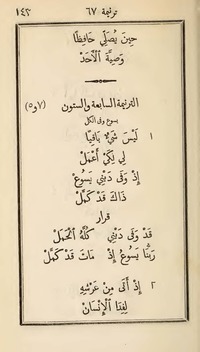 ترنيمة ٦٧ ١٤٣
حِينَ يُصَلِّي حَافِظًا
وَصِيَّةَ ٱلْأَحَدْ
الترنيمة السابعة والستون (٧و٥)
يسوع وفى الكل
١ لَيْسَ شَيْءٌ بَاقِيًا
لِي لِكَيْ أَعْمَلْ
إِذْ وَفَى دَيْنِي يَسُوعْ
ذَاكَ قَدْ كَمَّلْ
قرار
قَدْ وَفَى دَيْنِي كُلُّهُ ٱلْحَمَلْ
رَبُّنَا يَسُوعُ إِذْ مَاتَ قَدْ كَمَّلْ
٢ إِذْ أَتَى مِنْ عَرْشِهِ
لِفِدَا ٱلْإِنْسَانْ